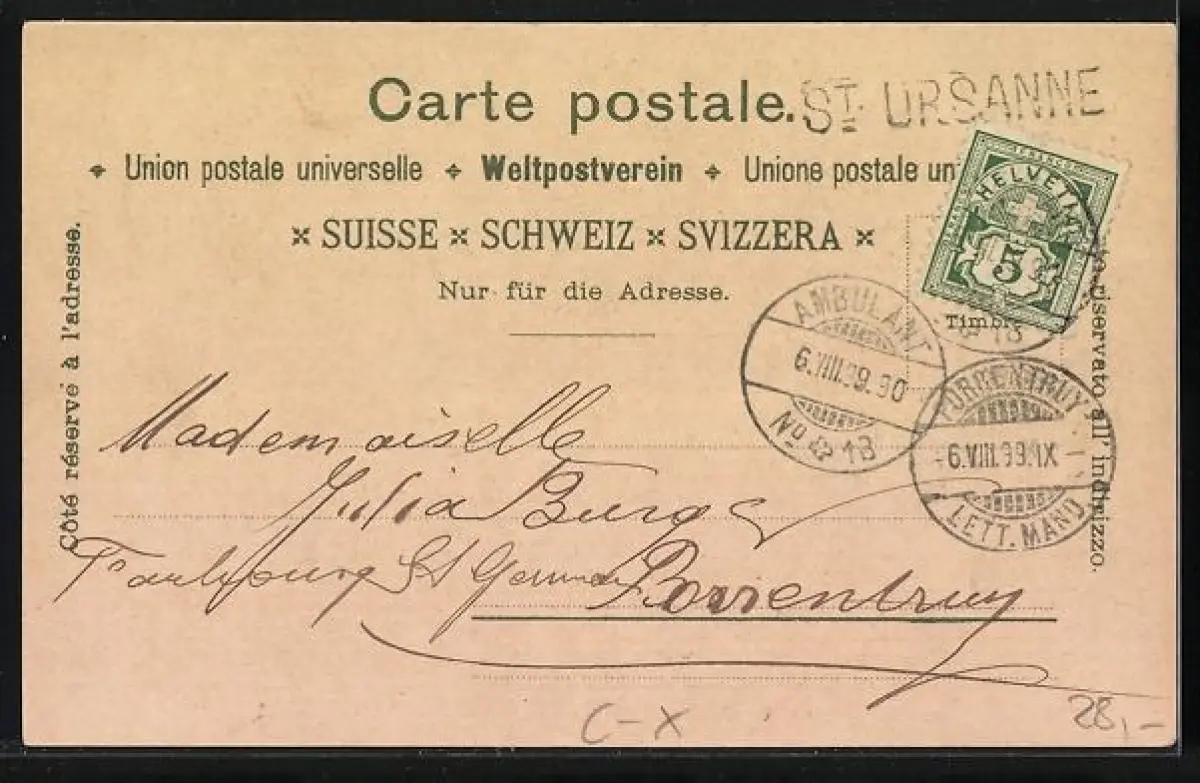 Carte postale.
ST. URSANNE
Union postale universelle Weltpostverein Unione postale un
SUISSE SCHWEIZ SVIZZERA
Nur für die Adresse.
Côté réservé à l'adresse.
riservato all' indirizzo.
HELVETIA
5
Timbre
AMBULANT
6.VIII.99.90
No 18
PORRENTRUY
6.VIII.99.IX
LETT. MAND
Mademoiselle
Julia
Faubourg St Germain Porrentruy
C-X
28,-